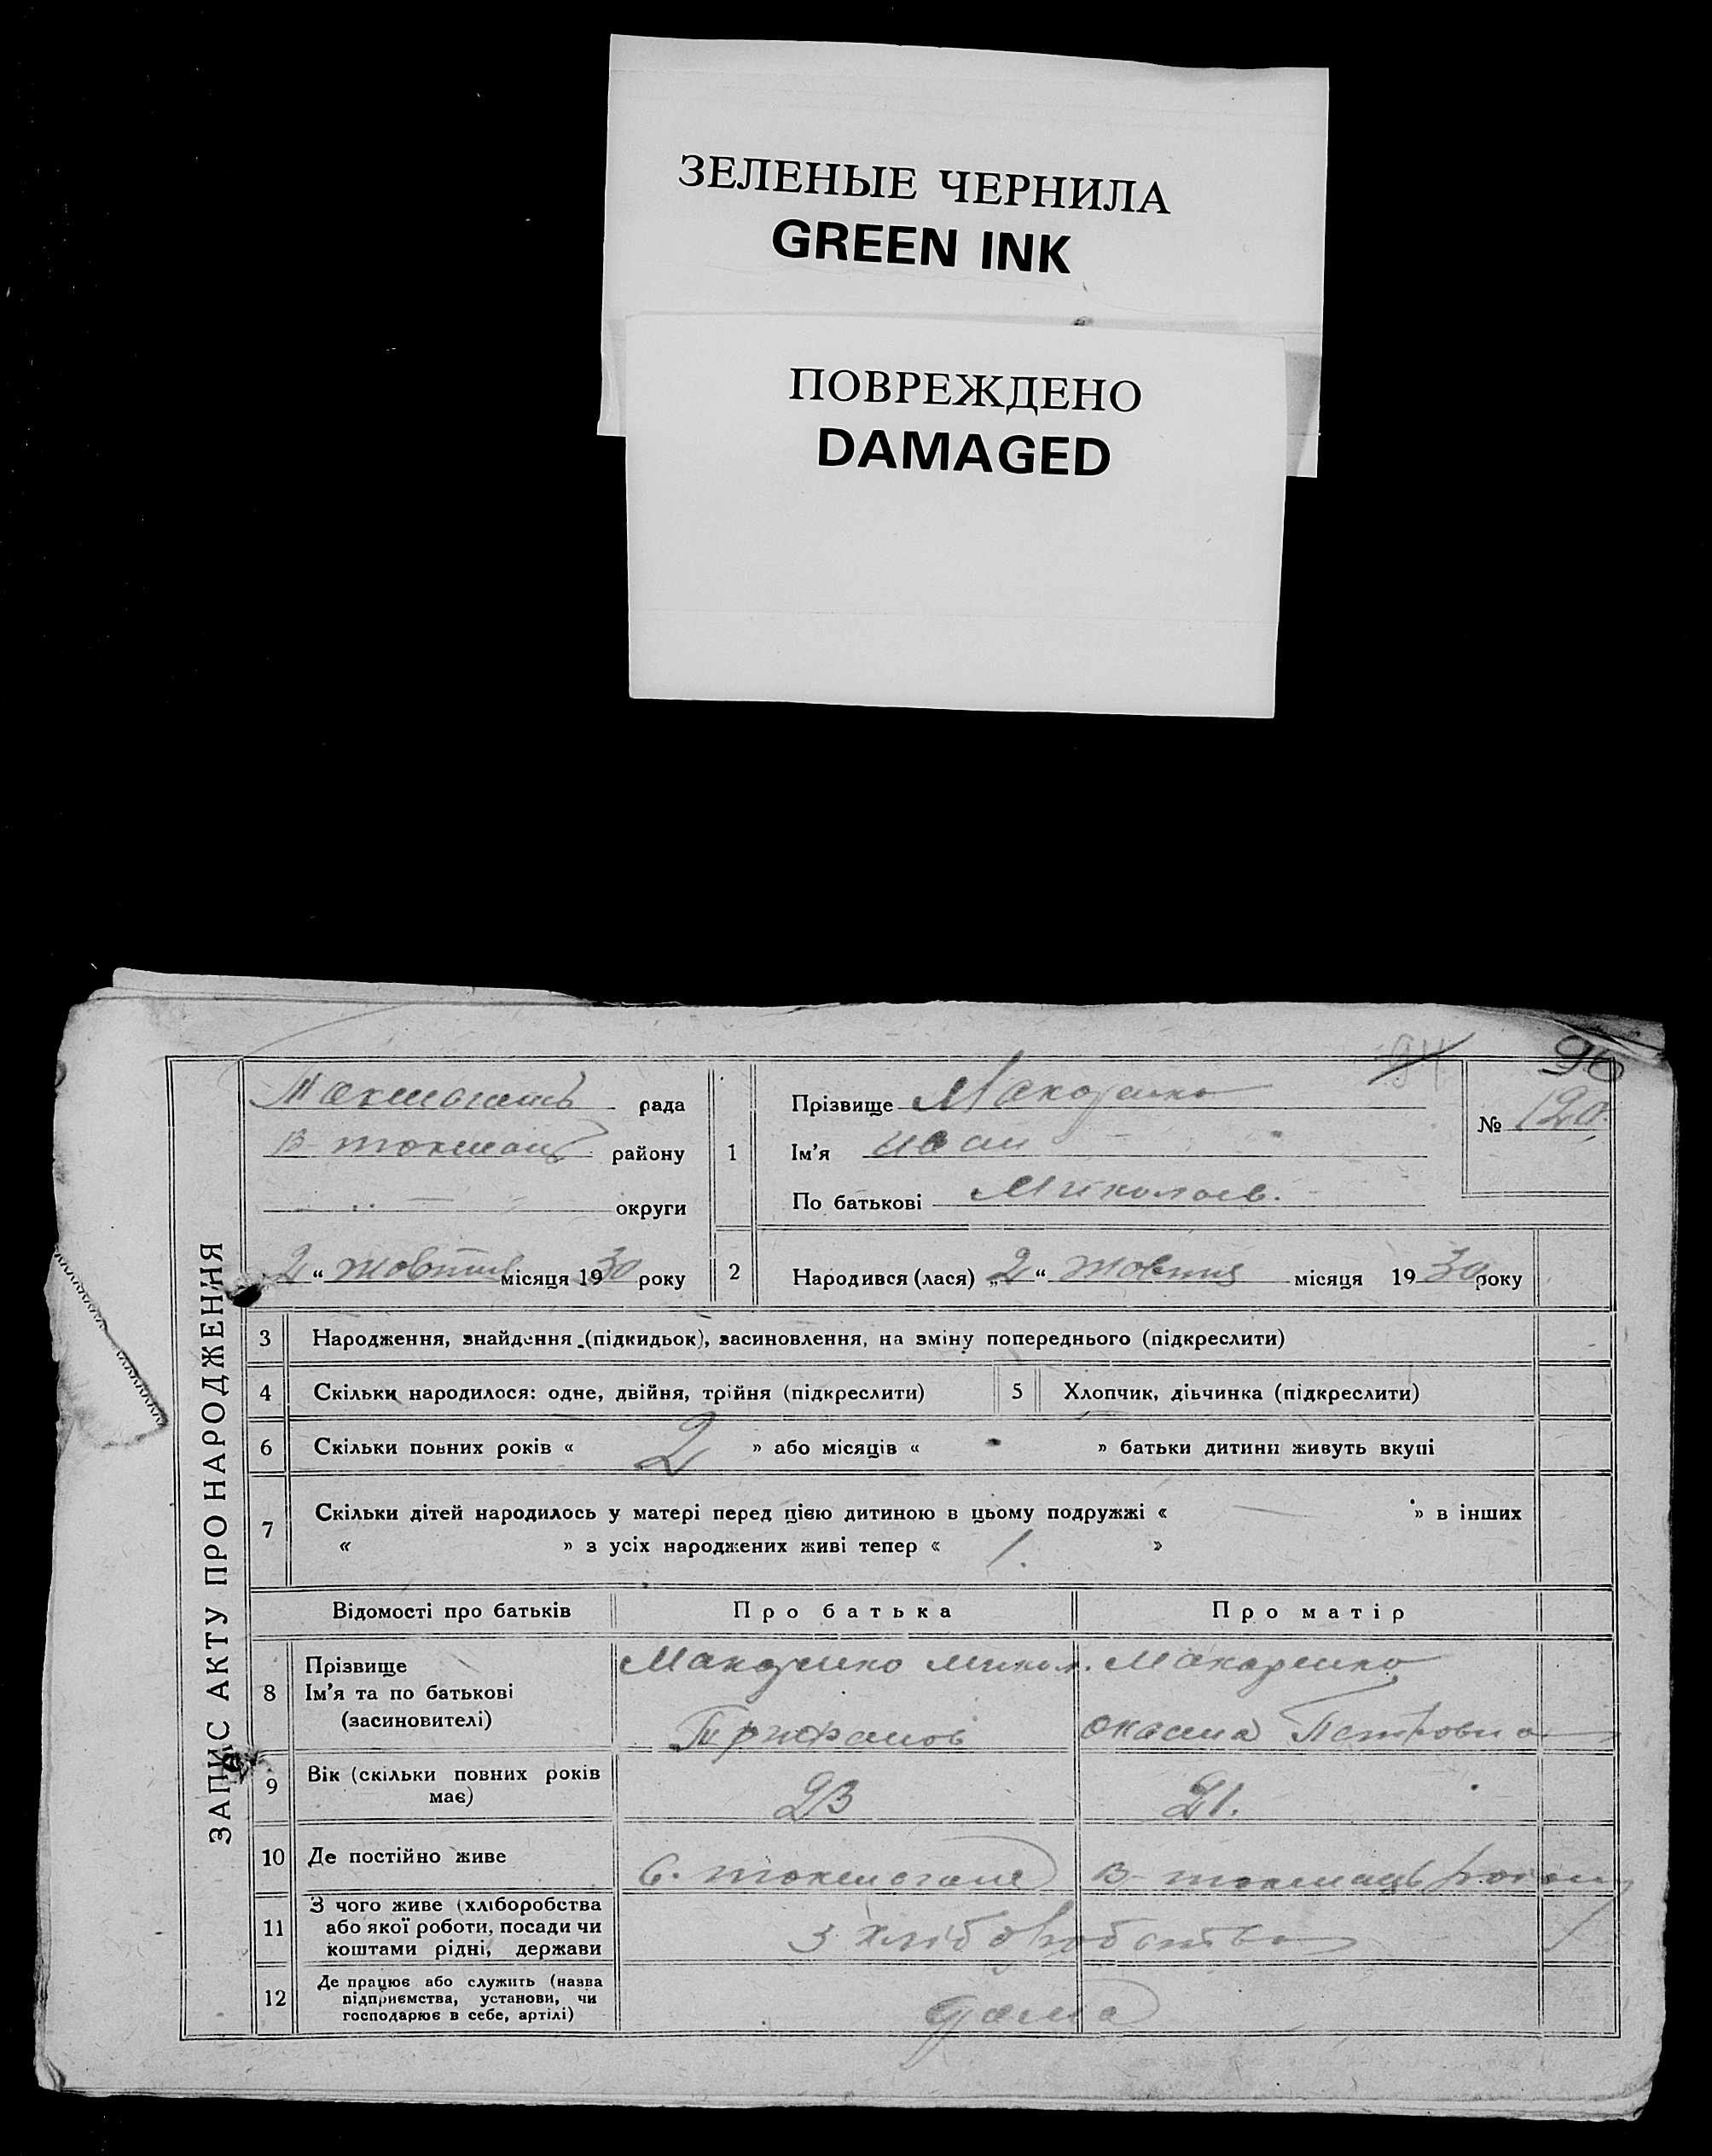 ЗЕЛЕНЫЕ ЧЕРНИЛА
GREEN INK
ПОВРЕЖДЕНО
DAMAGED
94
96
ЗАПИС АКТУ ПРО НАРОДЖЕННЯ
рада
В- токмац району
округи
2 “ жовтня місяця 1930 року
1
Прізвище Макаренко
Ім’я Иван
По батькові Миколаев.
№ 120.
2
Народився (лася) „2“ жовтня місяця 1930 року
3 Народження, знайдення (підкидьок), засиновлення, на зміну попереднього (підкреслити)
4 Скільки народилося: одне, двійня, трійня (підкреслити) 5 Хлопчик, дівчинка (підкреслити)
6 Скільки повних років « 2 » або місяців « - » батьки дитини живуть вкупі
7 Скільки дітей народилось у матері перед цією дитиною в цьому подружжі « — » в інших
« » з усіх народжених живі тепер « 1. »
Відомості про батьків Про батька Про матір
8 Прізвище
Ім’я та по батькові
(засиновителі)
Макаренко Микол.
Трифанов
Макаренко
Оксана Петровна
9 Вік (скільки повних років має) 23 21.
10 Де постійно живе С. В- токмацьк
11 З чого живе (хліборобства
або якої роботи, посади чи
коштами рідні, держави
З хліборобства
12 Де працює або служить (назва
підприємства, установи, чи
господарює в себе, артілі)
дома